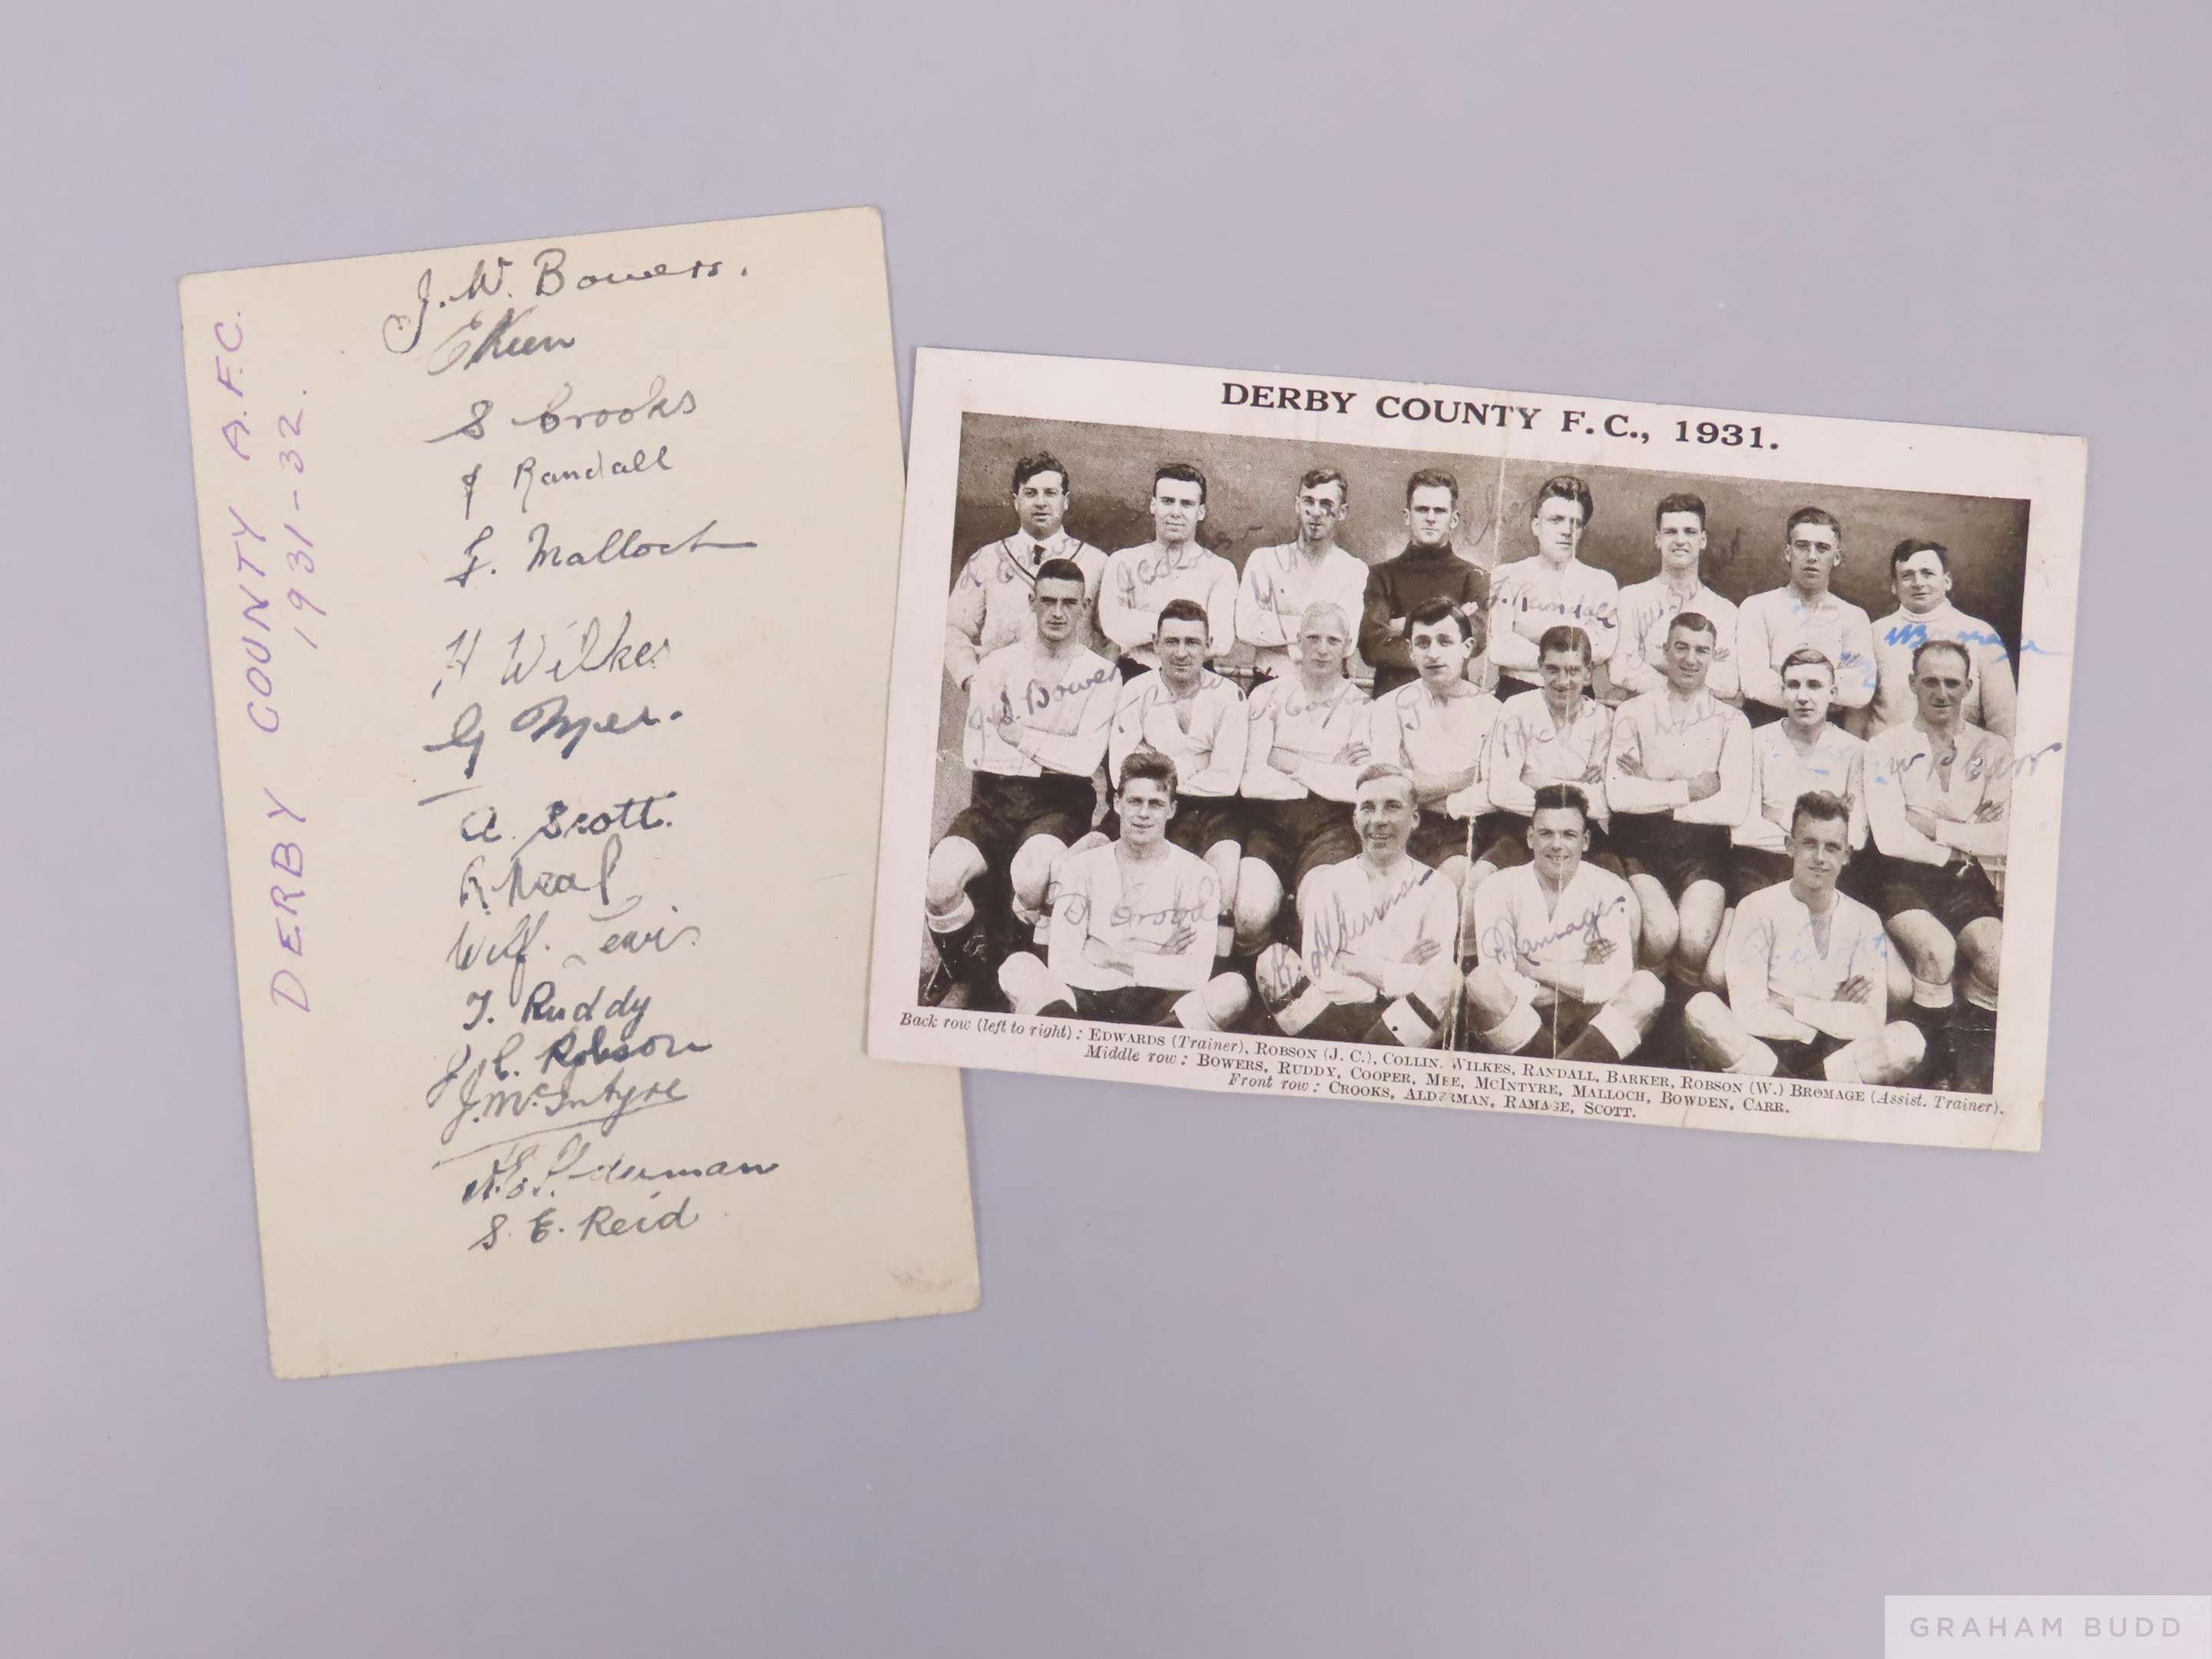 DERBY COUNTY A.F.C.
1931-32.
J. W. Bowers.
E Keen
S Crooks
J Randall
J. Malloch
H Wilkes
A. Scott.
R. Neal
Wilf. Lewis
T. Ruddy
J. C. Robson
J. McIntyre
Alderman
S. E. Reid
DERBY COUNTY F.C., 1931.
J. Randall
Bowers
Cooper
W P Carr
Crooks
A. Alderman
Ramage.
Back row (left to right): EDWARDS (Trainer), ROBSON (J. C.), COLLIN, WILKES, RANDALL, BARKER, ROBSON (W.) BROMAGE (Assist. Trainer).
Middle row: BOWERS, RUDDY, COOPER, MEE, MCINTYRE, MALLOCH, BOWDEN, CARR.
Front row: CROOKS, ALDERMAN, RAMAGE, SCOTT.
GRAHAM BUDD